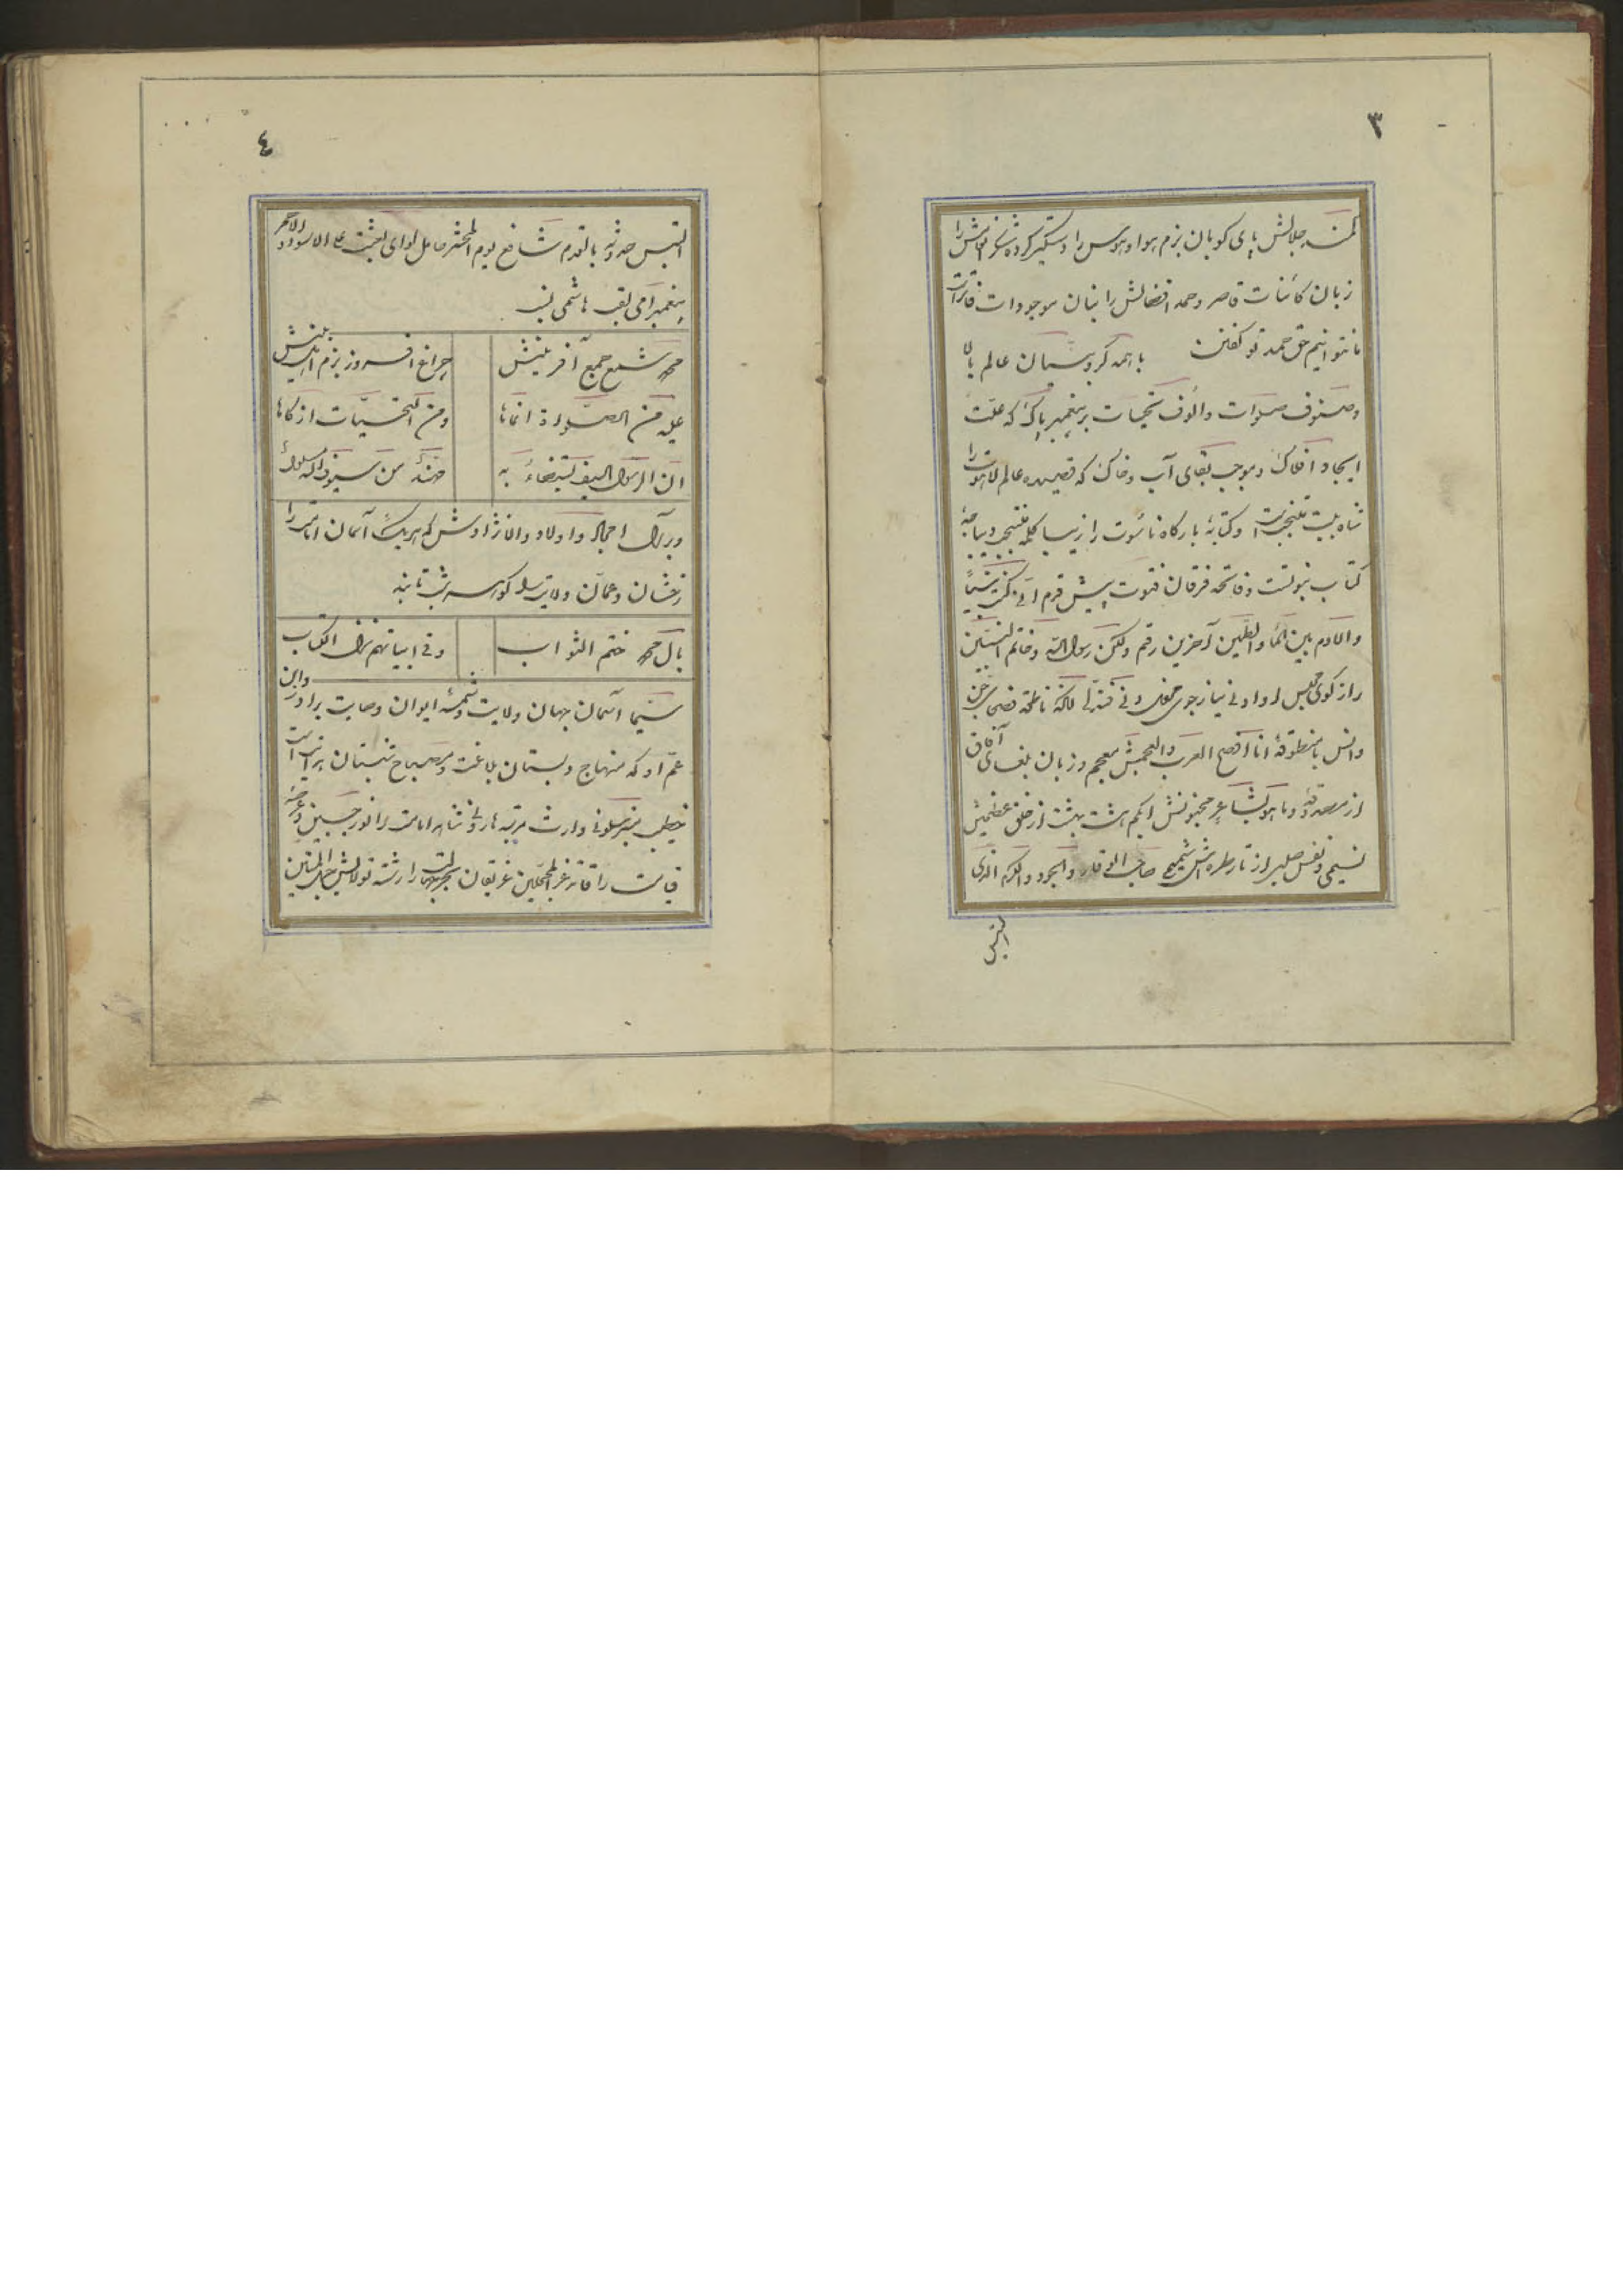 ۳
کمند جلالش پای کوبان بزم هوا و هوس را دستگیر کرده شکر نوالش را
زبان کائنات قاصر و حمد افضالش را بیان موجودات فاتر است
ما نتوانیم حق حمد تو گفتن با همه کروبیان عالم بالا
و صنوف صلوات و الوف تحیات بر پیغمبر پاک که علت
ایجاد افلاک و موجب بقای آب و خاک که قصیده عالم لاهوت را
شاه بیت منتخبست و کتابهٔ بارگاه ناسوت را زیبا کلمه منتجب دیباجهٔ
کتاب نبوتست و فاتحه فرقان فتوت پیش قدم انی کنت نبیاً
والادم بین الماء والطین آخرین رقم ولکن رسول الله و خاتم النبیین
راز گوی مجلس او ادنی نیاز جوی محفل دنی فتدلی لالکه ناطقه فصحای جن
و انس با منطوقهٔ انا افصح العرب والعجمش معجم و زبان بلغای آفاق
از مصدوقهٔ و ما هو بشاعر مجنونش ابکم هشت بهشت از خلق عظیمش
نسیمی و نفس صلیر از تار طره اش شمیمی صاحب الوقار والجود والکرم الذی
التبس
٤
التبس حدوثه بالقدم شافع یوم المحشر حامل لوای بعثت علی الاسود والاحمر
پیغمبر امی لقب هاشمی نسب
محمد شمع جمع آفرینش چراغ افروز بزم اهل بینش
علیه من الصلواة انماها ومن التحیّات ازکاها
ان الرسول لسیف یستضاء به مهند من سیوف الله مسلول
و بر آل امجاد و اولاد والانژادش که هر یک آسمان امامت را
رخشان و عمان ولایت را گوهر شب تابند
بآل محمد ختم الثواب وفی ابیاتهم نزل الکتاب
سیما آسمان جهان ولایت و شمسهٔ ایوان وصایت برادر و ابن
عم او که منهاج دبستان بلاغت و مصباح شبستان هدایت است
خطیب منبر سلونی وارث مرتبه هارونی شاهد امامت را نور جبین و عرصهٔ
قیامت را قائد غر المحجلین غریقان بحر بلا را رشته تولایش حبل المتین